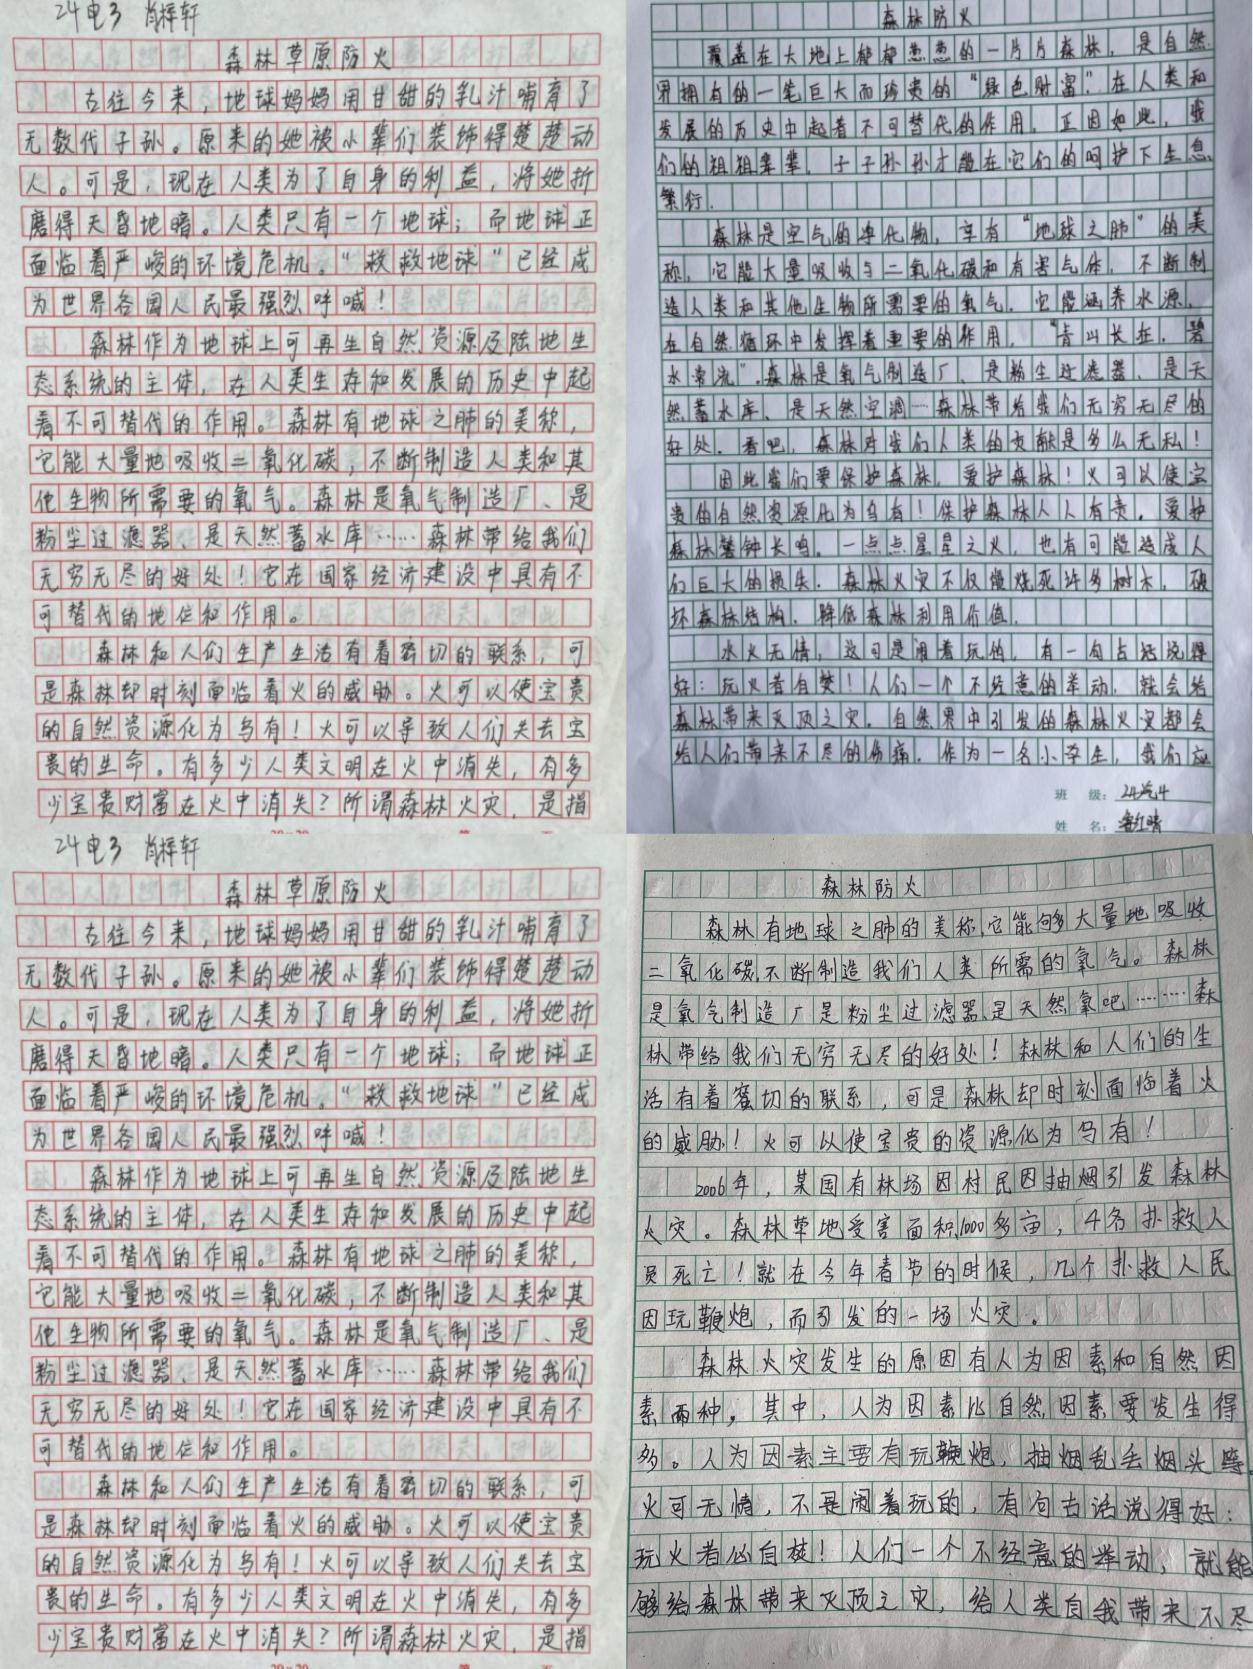 24电3 肖梓轩
森林草原防火
古往今来，地球妈妈用甘甜的乳汁哺育了
无数代子孙。原来的她被小辈们装饰得楚楚动
人。可是，现在人类为了自身的利益，将她折
磨得天昏地暗。人类只有一个地球；而地球正
面临着严峻的环境危机。“救救地球”已经成
为世界各国人民最强烈呼喊！
森林作为地球上可再生自然资源及陆地生
态系统的主体，在人类生存和发展的历史中起
着不可替代的作用。森林有地球之肺的美称，
它能大量地吸收二氧化碳，不断制造人类和其
他生物所需要的氧气。森林是氧气制造厂、是
粉尘过滤器、是天然蓄水库……森林带给我们
无穷无尽的好处！它在国家经济建设中具有不
可替代的地位和作用。
森林和人们生产生活有着密切的联系，可
是森林却时刻面临着火的威胁。火可以使宝贵
的自然资源化为乌有！火可以导致人们失去宝
贵的生命。有多少人类文明在火中消失，有多
少宝贵财富在火中消失？所谓森林火灾，是指
森林防火
覆盖在大地上郁郁葱葱的一片片森林，是自然
界拥有的一笔巨大而珍贵的“绿色财富”在人类和
发展的历史中起着不可替代的作用，正因如此，我
们的祖祖辈辈，子子孙孙才能在它们的呵护下生息
繁衍．
森林是空气的净化物，享有“地球之肺”的美
称，它能大量吸收与二氧化碳和有害气体，不断制
造人类和其他生物所需要的氧气．它能涵养水源，
在自然循环中发挥着重要的作用，“青山长在，碧
水常流”．森林是氧气制造厂、是粉尘过滤器、是天
然蓄水库、是天然空调……森林带给我们无穷无尽的
好处．看吧，森林对我们人类的贡献是多么无私！
因此我们要保护森林，爱护森林！火可以使宝
贵的自然资源化为乌有！保护森林人人有责，爱护
森林警钟长鸣，一点点星星之火，也有可能造成人
们巨大的损失．森林火灾不仅烧死许多树木，破
坏森林结构，降低森林利用价值．
水火无情，这可是闹着玩的，有一句古话说得
好：玩火者自焚！人们一个不经意的举动，就会给
森林带来灭顶之灾．自然界中引发的森林火灾都会
给人们带来不尽的伤痛．作为一名小学生，我们应
班 级：24汽4
姓 名：红晴
24电3 肖梓轩
森林草原防火
古往今来，地球妈妈用甘甜的乳汁哺育了
无数代子孙。原来的她被小辈们装饰得楚楚动
人。可是，现在人类为了自身的利益，将她折
磨得天昏地暗。人类只有一个地球；而地球正
面临着严峻的环境危机。“救救地球”已经成
为世界各国人民最强烈呼喊！
森林作为地球上可再生自然资源及陆地生
态系统的主体，在人类生存和发展的历史中起
着不可替代的作用。森林有地球之肺的美称，
它能大量地吸收二氧化碳，不断制造人类和其
他生物所需要的氧气。森林是氧气制造厂、是
粉尘过滤器、是天然蓄水库……森林带给我们
无穷无尽的好处！它在国家经济建设中具有不
可替代的地位和作用。
森林和人们生产生活有着密切的联系，可
是森林却时刻面临着火的威胁。火可以使宝贵
的自然资源化为乌有！火可以导致人们失去宝
贵的生命。有多少人类文明在火中消失，有多
少宝贵财富在火中消失？所谓森林火灾，是指
森林防火
森林有地球之肺的美称，它能够大量地吸收
二氧化碳，不断制造我们人类所需的氧气。森林
是氧气制造厂是粉尘过滤器、是天然氧吧………森
林带给我们无穷无尽的好处！森林和人们的生
活有着密切的联系，可是森林却时刻面临着火
的威胁！火可以使宝贵的资源化为乌有！
2006年，某国有林场因村民因抽烟引发森林
火灾。森林草地受害面积1000多亩，4名扑救人
员死亡！就在今年春节的时候，几个扑救人民
因玩鞭炮，而引发的一场火灾。
森林火灾发生的原因有人为因素和自然因
素两种，其中，人为因素比自然因素要发生得
多。人为因素主要有玩鞭炮，抽烟乱丢烟头等．
火可无情，不是闹着玩的，有句古话说得好：
玩火者必自焚！人们一个不经意的举动，就能
够给森林带来灭顶之灾，给人类自我带来不尽